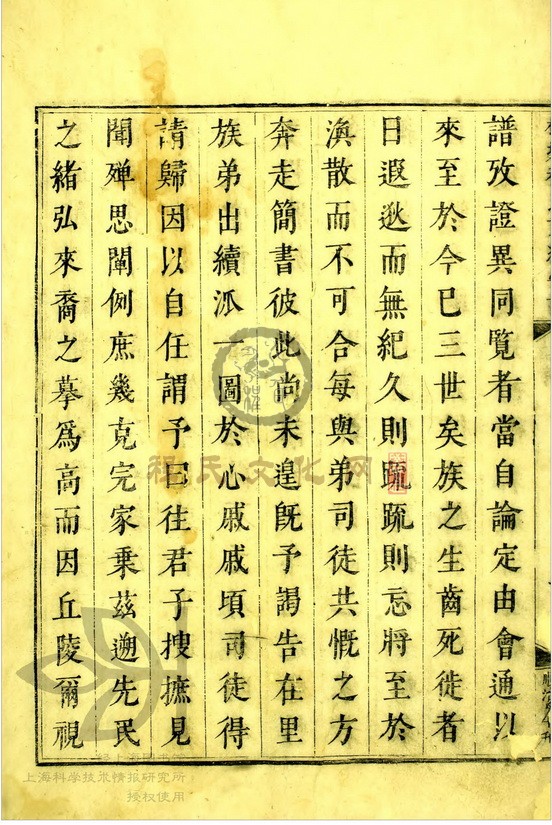 譜攷證異同覽者當自論定由會通以
來至於今已三世矣族之生齒死徙者
日遐逖而無紀久則䟽䟽則忘將至於
渙散而不可合每與弟司徒共慨之方
奔走簡書彼此尚未遑旣予謁告在里
族弟出續派一圖於心戚戚頃司徒得
請歸因以自任謂予曰往君子搜摭見
聞殫思闡例庶幾克完家乗茲遡先民
之緒弘來裔之摹爲高而因丘陵爾視
程氏文化网
上海图书馆
上海科学技术情报研究所
授权使用